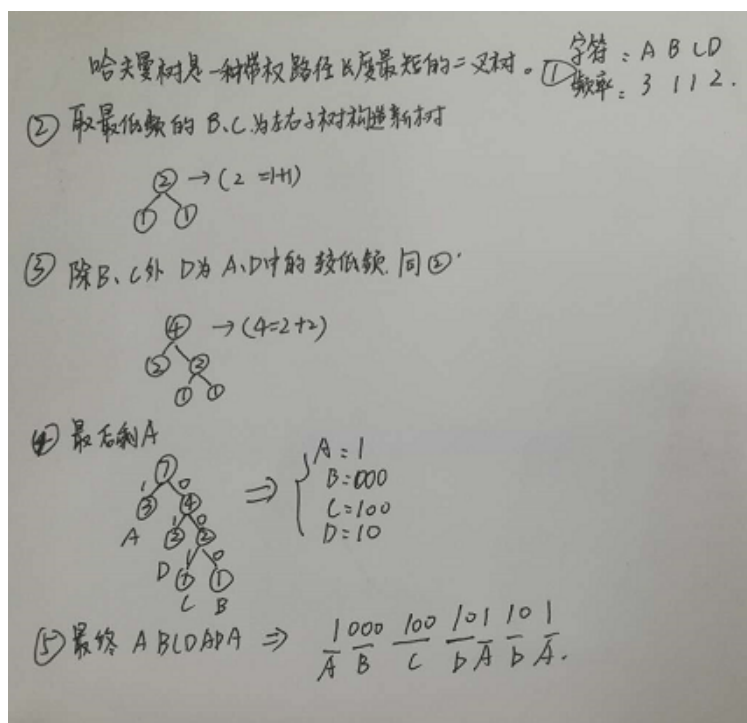 哈夫曼树是一种带权路径长度最短的二叉树。① 字符：A B C D
频率：3 1 1 2.
② 取最低频的 B、C 为左右子树构造新树
② → (2 =1+1)
① ①
③ 除B、C外 D为 A、D中的 较低频. 同②.
④ → (4=2+2)
② ②
① ①
④ 最后剩A
⑦
1 0
③ ④
A 1 0
② ②
D 1 0
① ①
C B
⇒ { A : 1
B = 000
C = 100
D = 10
⑤ 最终 A B C D A D A ⇒ 1 000 100 10 1 10 1
A B C D A D A.